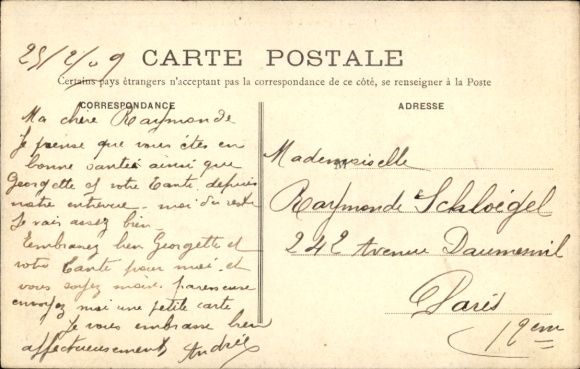 25/2/09
CARTE POSTALE
Certains pays étrangers n'acceptant pas la correspondance de ce côté, se renseigner à la Poste
CORRESPONDANCE
Ma chère Raymonde
Je pense que vous êtes en
bonne santé ainsi que
Georgette et votre Tante. depuis
notre entrevue. moi du reste
Je vais assez bien
Embrassez bien Georgette et
votre Tante pour moi. et
vous soyez moins paresseuse
envoyez moi une petite carte
Je vous embrasse bien
affectueusement Andrée
ADRESSE
Mademoiselle
Raymonde Schloégel
242 Avenue Daumesnil
Paris
12em